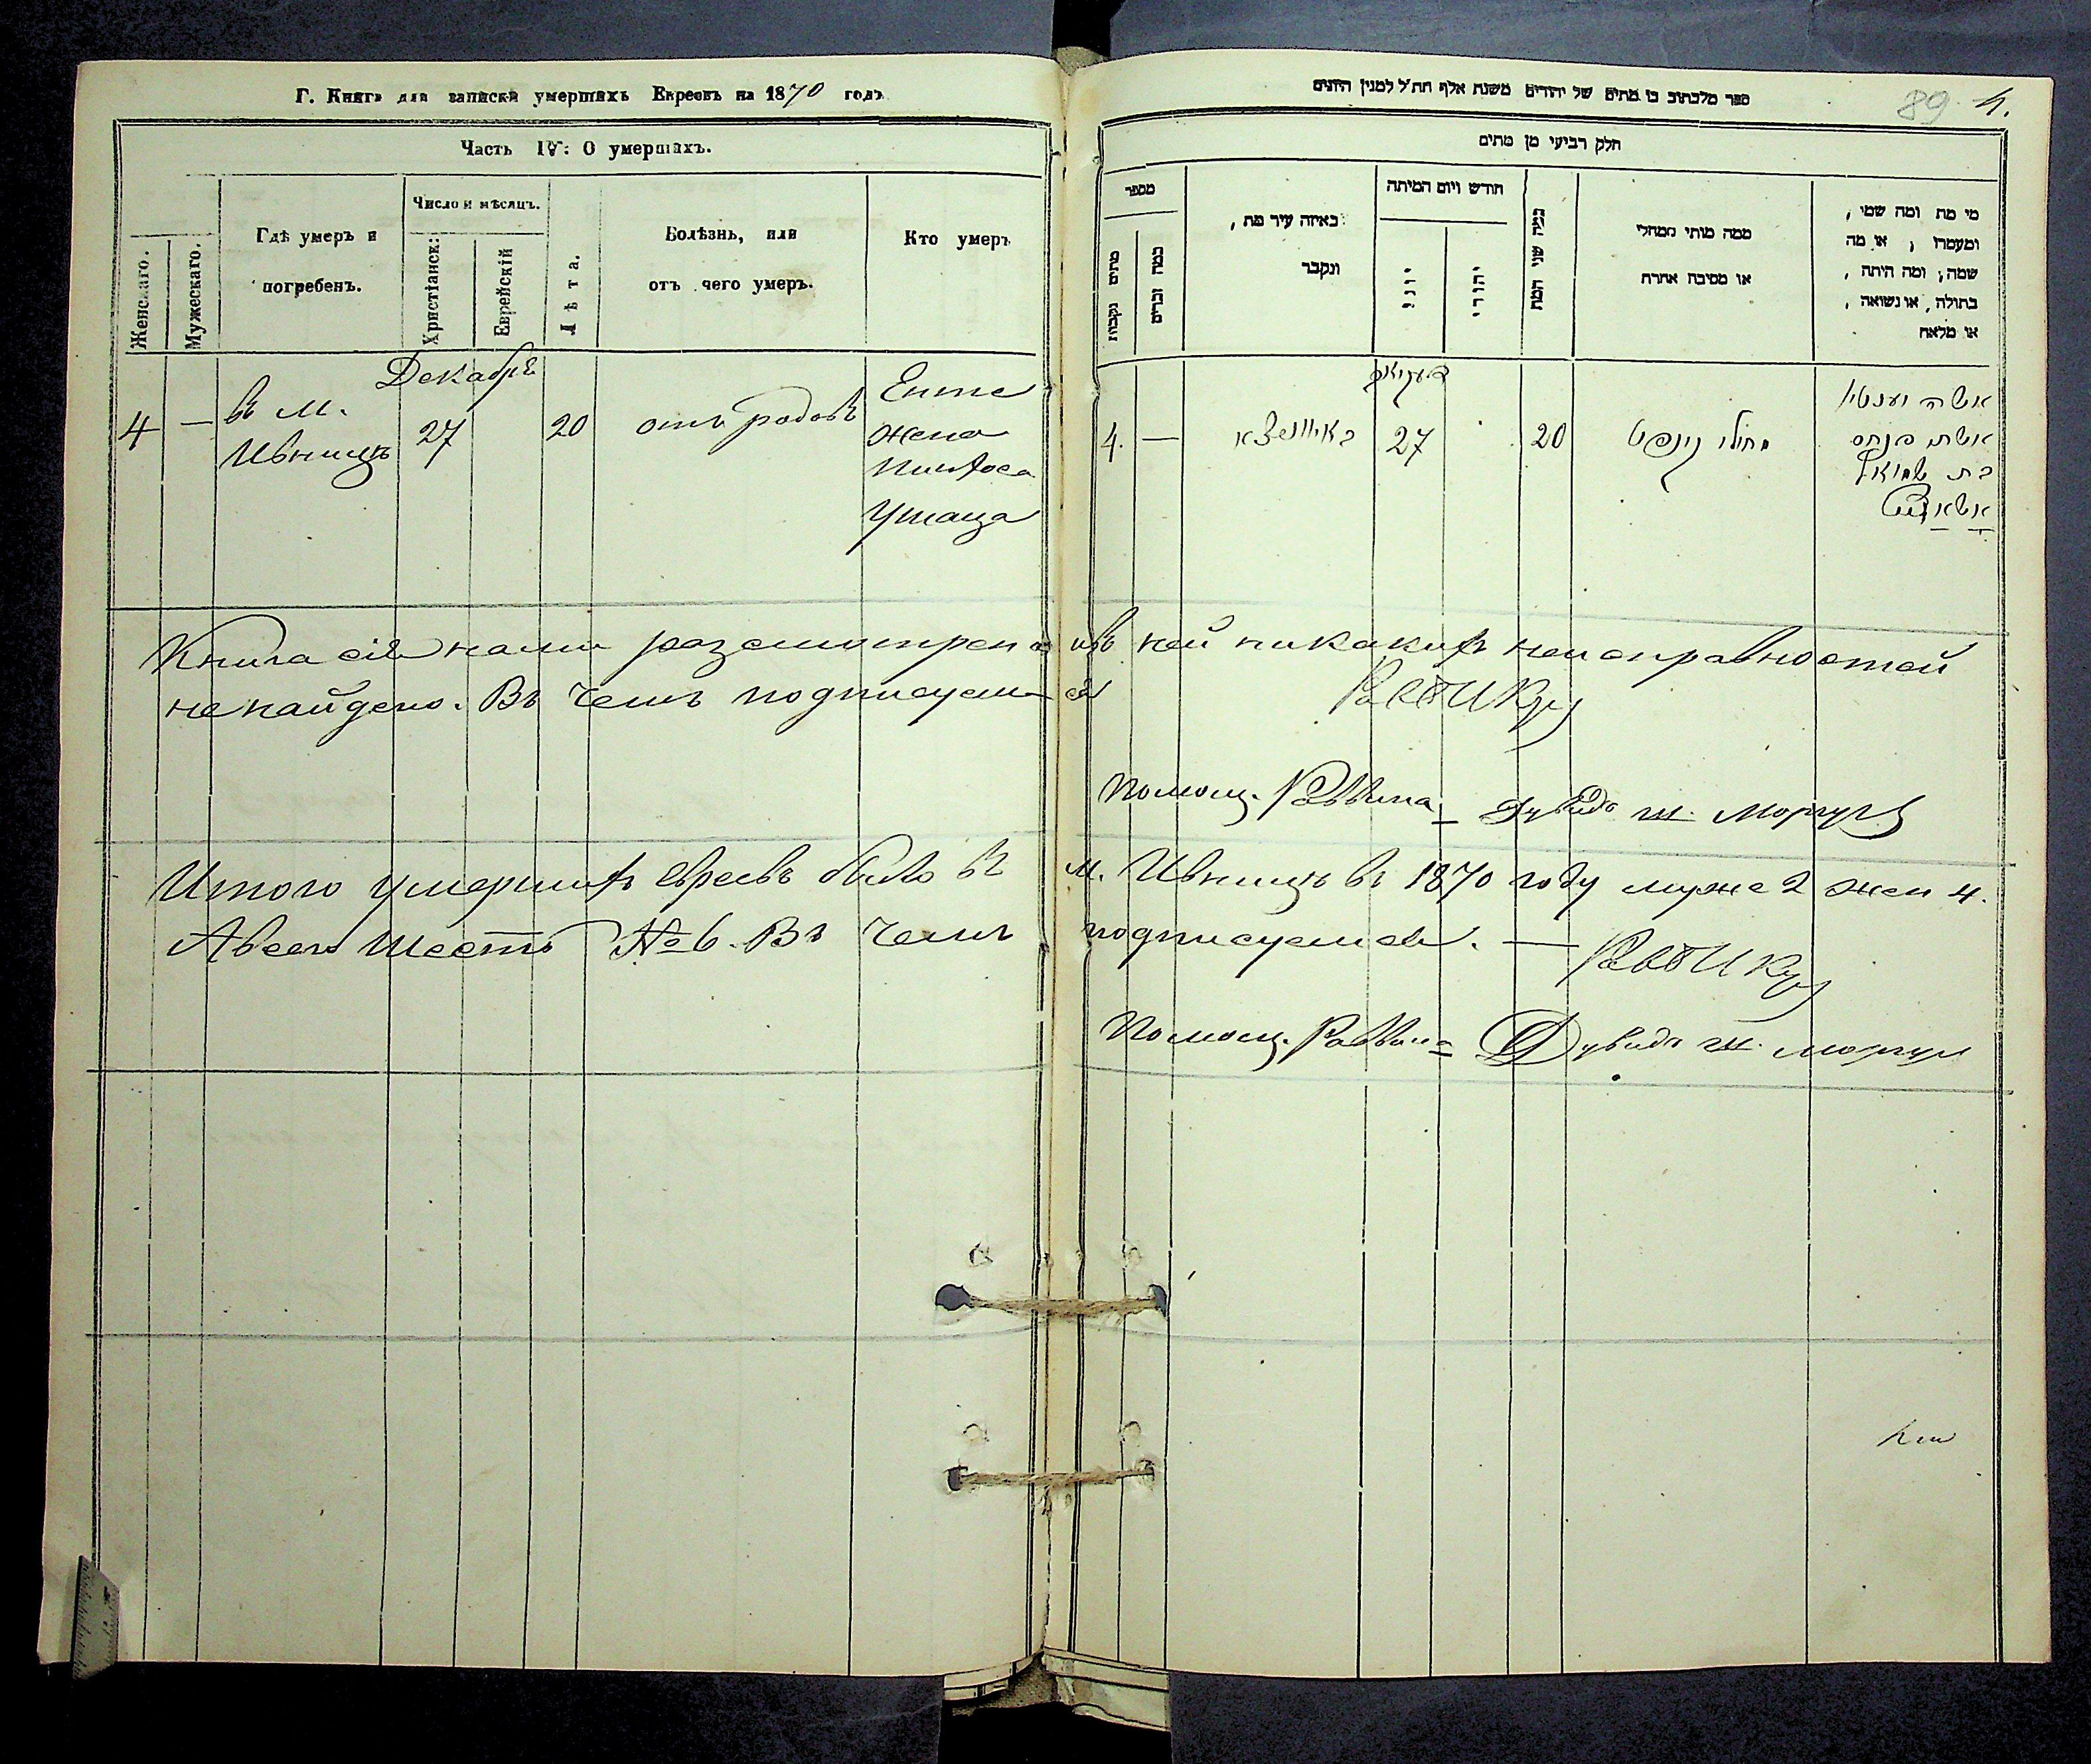 Г. Книга для записки умершихъ Евреевъ на 1870 годъ
Часть IV: О умершихъ.
Женскаго.
Мужескаго.
Гдѣ умеръ и
погребенъ.
Число и мѣсяцъ.
Христіанск:
Еврейскій
Лѣта.
Болѣзнь, или
отъ чего умеръ.
Кто умеръ
Декабрь
4 — въ м. Ивницѣ 27 20 отъ родовъ
Енте
жена
Пинхоса
Ушаца
ספר מלכתוב בו מתים של יהודים משנת אלף תת״ל למנין היונים
89 4.
חלק רביעי מן מתים
מספר
מתים נקבות
כמה זכרים
באיזה עיר מת,
ונקבר
חודש ויום המיתה
יוני
יהודי
כמה שני המת
ממה מותי ממחלי
או מסיבה אחרת
מי מת ומה שמו,
ומעמדו, או מה
שמה, ומה היתה,
בתולה, או נשואה,
או מלאה
4. — 27 20
אשה יענטא
אשת פנחס
בת שמואל
Книга сія нами разсмотрена и въ ней никакихъ неисправностей
не найдено. Въ чемъ подписуемся
Помощ. Раввина Дувидъ
Итого умершихъ евреевъ было въ м. Ивницѣ въ 1870 году муже 2 жен 4.
А всего шесть № 6. Въ чемъ подписуемся. —
Помощ. Раввина Дувидъ